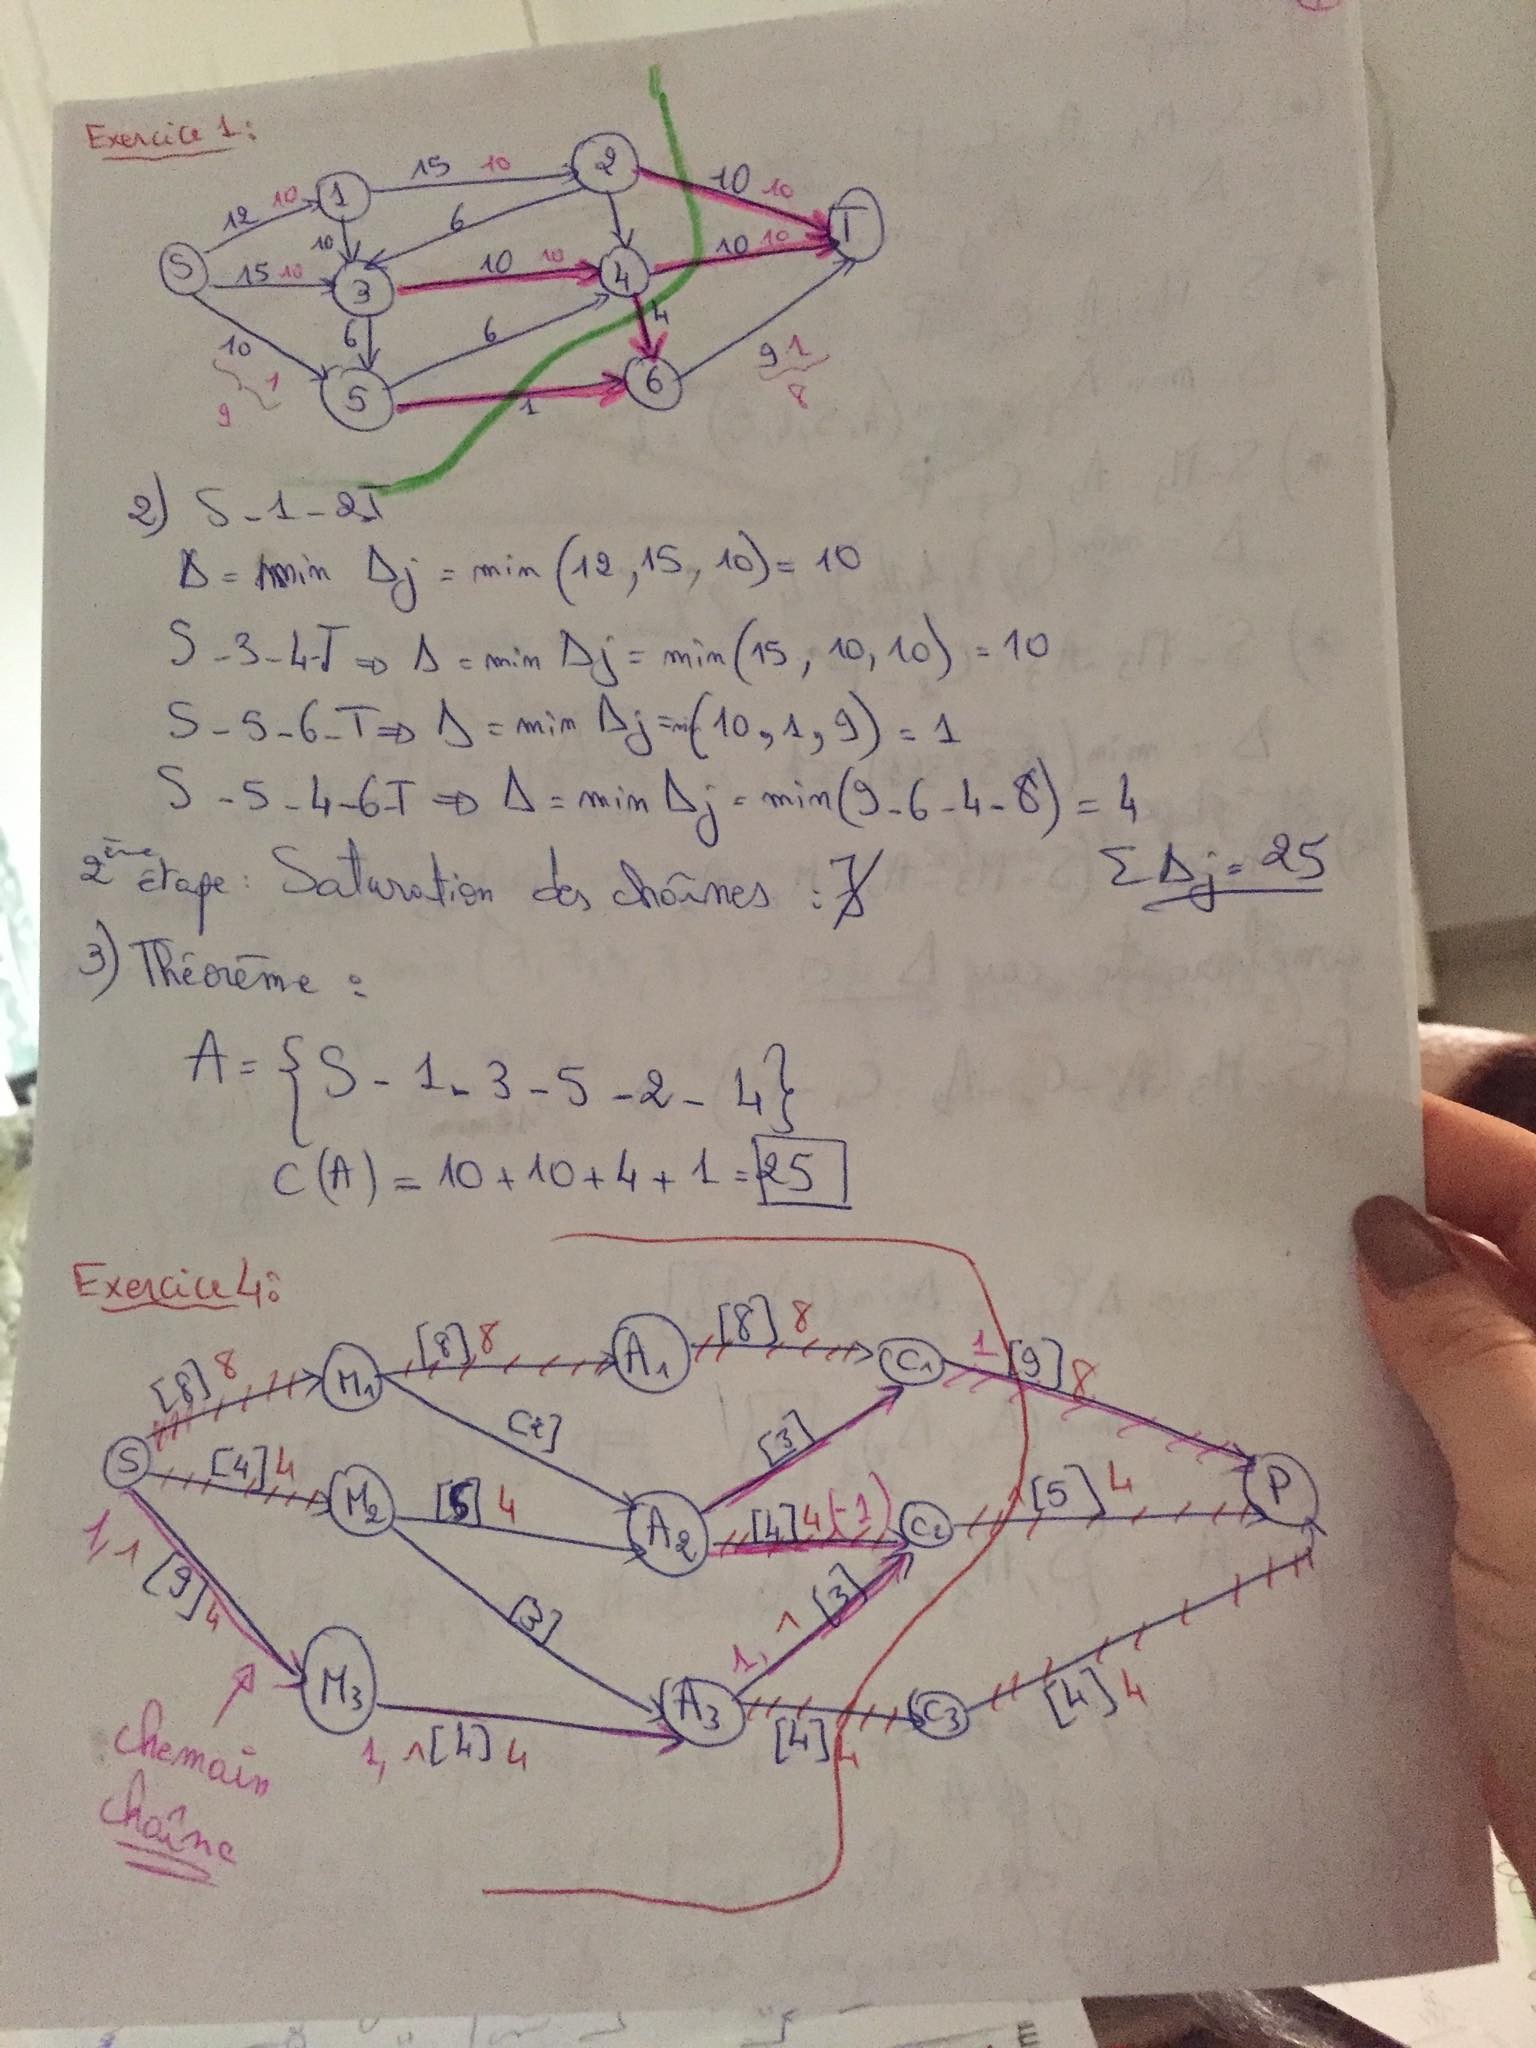 Exercice 1:
12 10
1
15 10
2
10 10
T
S
15 10
10
3
6
10 10
4
10 10
10
1
9
6
5
6
4
1
6
9 1
8
2) S - 1 - 2 T
Δ = min Δj = min (12, 15, 10) = 10
S - 3 - 4 - T ⇒ Δ = min Δj = min (15, 10, 10) = 10
S - 5 - 6 - T ⇒ Δ = min Δj = (10, 1, 9) = 1
S - 5 - 4 - 6 - T ⇒ Δ = min Δj = min (9 - 6 - 4 - 8) = 4
2ème étape : Saturation des chaînes :
Σ Δj = 25
3) Théorème :
A = { S - 1 - 3 - 5 - 2 - 4 }
C (A) = 10 + 10 + 4 + 1 = 25
Exercice 4:
[8] 8
M1
[8] 8
A1
[8] 8
C1
1 [9] 8
S
[4] 4
M2
4
A2
[3]
[4] 4 (-1)
C2
[5] 4
P
1, 1 [9] 4
M3
[3]
1, 1 [4] 4
A3
1, 1 [3]
[4] 4
C3
[4] 4
chemain
chaîne